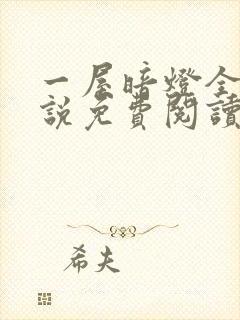 一屋暗燈全
說免費閱讀
希夫